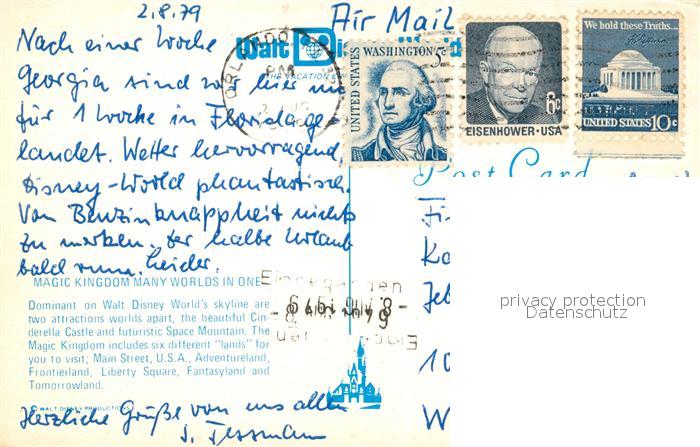 2.8.79
Air Mail
Nach einer Woche
Georgia sind wir hier
für 1 Woche in Florida ge-
landet. Wetter hervorragend,
Disney-World phantastisch.
Von Benzinknappheit nichts
zu merken. Der halbe Urlaub
bald rum. Leider.
Walt Di
THE VACATION
ORLANDO
PM
UNITED STATES
WASHINGTON 5c
6c
EISENHOWER·USA
We hold these Truths...
UNITED STATES 10c
Post Card
MAGIC KINGDOM MANY WORLDS IN ONE
Dominant on Walt Disney World's skyline are
two attractions worlds apart, the beautiful Cin-
derella Castle and futuristic Space Mountain. The
Magic Kingdom includes six different "lands" for
you to visit; Main Street, U.S.A., Adventureland,
Frontierland, Liberty Square, Fantasyland and
Tomorrowland.
© WALT DISNEY PRODUCTIONS
Eingegangen
Herzliche Grüße von uns allen
Fi
Ko
10
W
privacy protection
Datenschutz